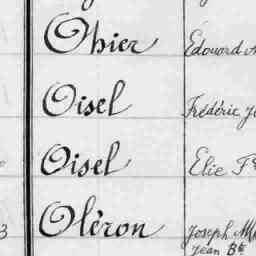 Ohier Édouard
Oisel Frédéric
Oisel Elie
Oléron Joseph
Jean Bte